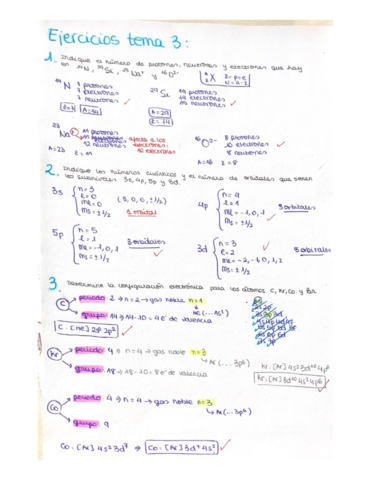 Ejercicios tema 3:
1. Indique el número de protones, neutrones y electrones que hay
en ¹⁴N, ²⁹Si, ²³Na⁺ y ¹⁶O²⁻
X
¹⁴N 7 protones
7 electrones
7 neutrones
Z=7 A=14
14 protones
A=29
Z=14
23
Na 11 protones
12 neutrones
10 electrones
A=23 Z=11
¹⁶O²⁻ 8 protones
10 electrones
8 neutrones
A=16 Z=8
2. Indique los números cuánticos y el número de orbitales que tienen
los subniveles 3s, 4p, 5p y 3d.
3s
n=3
l=0
ml=0
ms=±1/2
(3, 0, 0, ±1/2)
1 orbital
4p
n=4
l=1
ml=-1, 0, 1
ms=±1/2
3 orbitales
5p
n=5
l=1
ml=-1, 0, 1
ms=±1/2
3 orbitales
3d
n=3
l=2
ml=-2, -1, 0, 1, 2
ms=±1/2
5 orbitales
3. Determine la configuración electrónica para los átomos C, Kr, Co y
C
periodo 2 → n=2 → gas noble n=1
grupo 14 → 14-10 = 4 e⁻ de valencia
He (...1s²)
C: [He] 2s² 2p²
Kr
periodo 4 → n=4 → gas noble n=3
Ar (...3p⁶)
grupo 18 → 18-10 = 8 e⁻ de valencia
Kr: [Ar] 4s² 3d¹⁰ 4p⁶
Kr: [Ar] 3d¹⁰ 4s² 4p⁶
Co
periodo 4 → n=4 → gas noble n=3
Ar (...3p⁶)
grupo 9
Co: [Ar] 4s² 3d⁷ → Co: [Ar] 3d⁷ 4s²